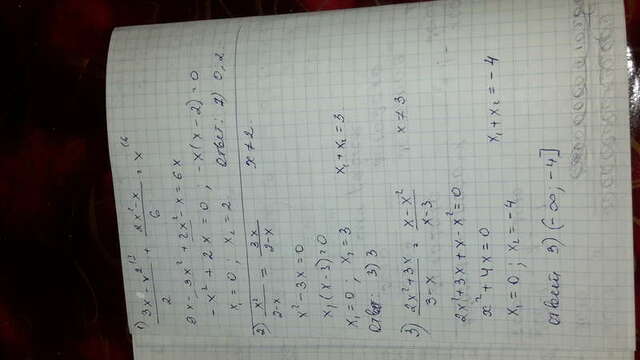 1) (3x - x²)/2 |³ + (2x² - x)/6 = x |6
9x - 3x² + 2x² - x = 6x
-x² + 2x = 0 ; -x(x-2) = 0
x₁ = 0 ; x₂ = 2 Ответ: 2) 0, 2
2) x²/(2-x) = 3x/(2-x) x ≠ 2.
x² - 3x = 0
x₁(x-3) = 0
x₁ = 0 ; x₂ = 3 x₁ + x₂ = 3.
Ответ 3) 3
3) (2x² + 3x)/(3-x) = (x - x²)/(x-3) x ≠ 3.
2x² + 3x + x - x² = 0
x² + 4x = 0
x₁ = 0 ; x₂ = -4 x₁ + x₂ = -4
ответ 3) (-∞; -4]